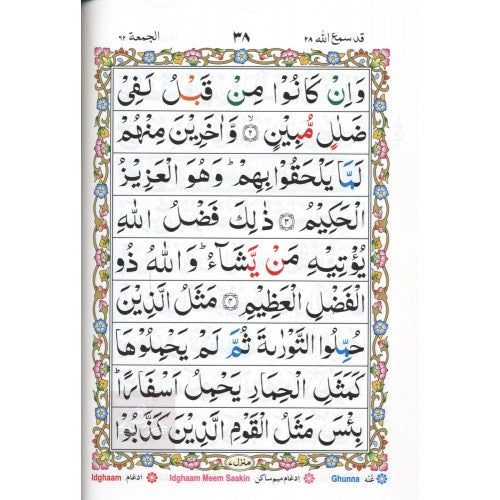 قد سمع الله ٢٨ ٣٨ الجمعة ٦٢
وَاِنْ كَانُوْا مِنْ قَبْلُ لَفِیْ
ضَلٰلٍ مُّبِیْنٍ ۙ﴿۲﴾ وَّاٰخَرِیْنَ مِنْهُمْ
لَمَّا یَلْحَقُوْا بِهِمْ ؕ وَهُوَ الْعَزِیْزُ
الْحَكِیْمُ ﴿۳﴾ ذٰلِكَ فَضْلُ اللّٰهِ
یُؤْتِیْهِ مَنْ یَّشَآءُ ؕ وَاللّٰهُ ذُو
الْفَضْلِ الْعَظِیْمِ ﴿۴﴾ مَثَلُ الَّذِیْنَ
حُمِّلُوا التَّوْرٰىةَ ثُمَّ لَمْ یَحْمِلُوْهَا
كَمَثَلِ الْحِمَارِ یَحْمِلُ اَسْفَارًا ؕ
بِئْسَ مَثَلُ الْقَوْمِ الَّذِیْنَ كَذَّبُوْا
منزل ٧
Idghaam ادغام Idghaam Meem Saakin ادغام ميم ساكن Ghunna غنّه